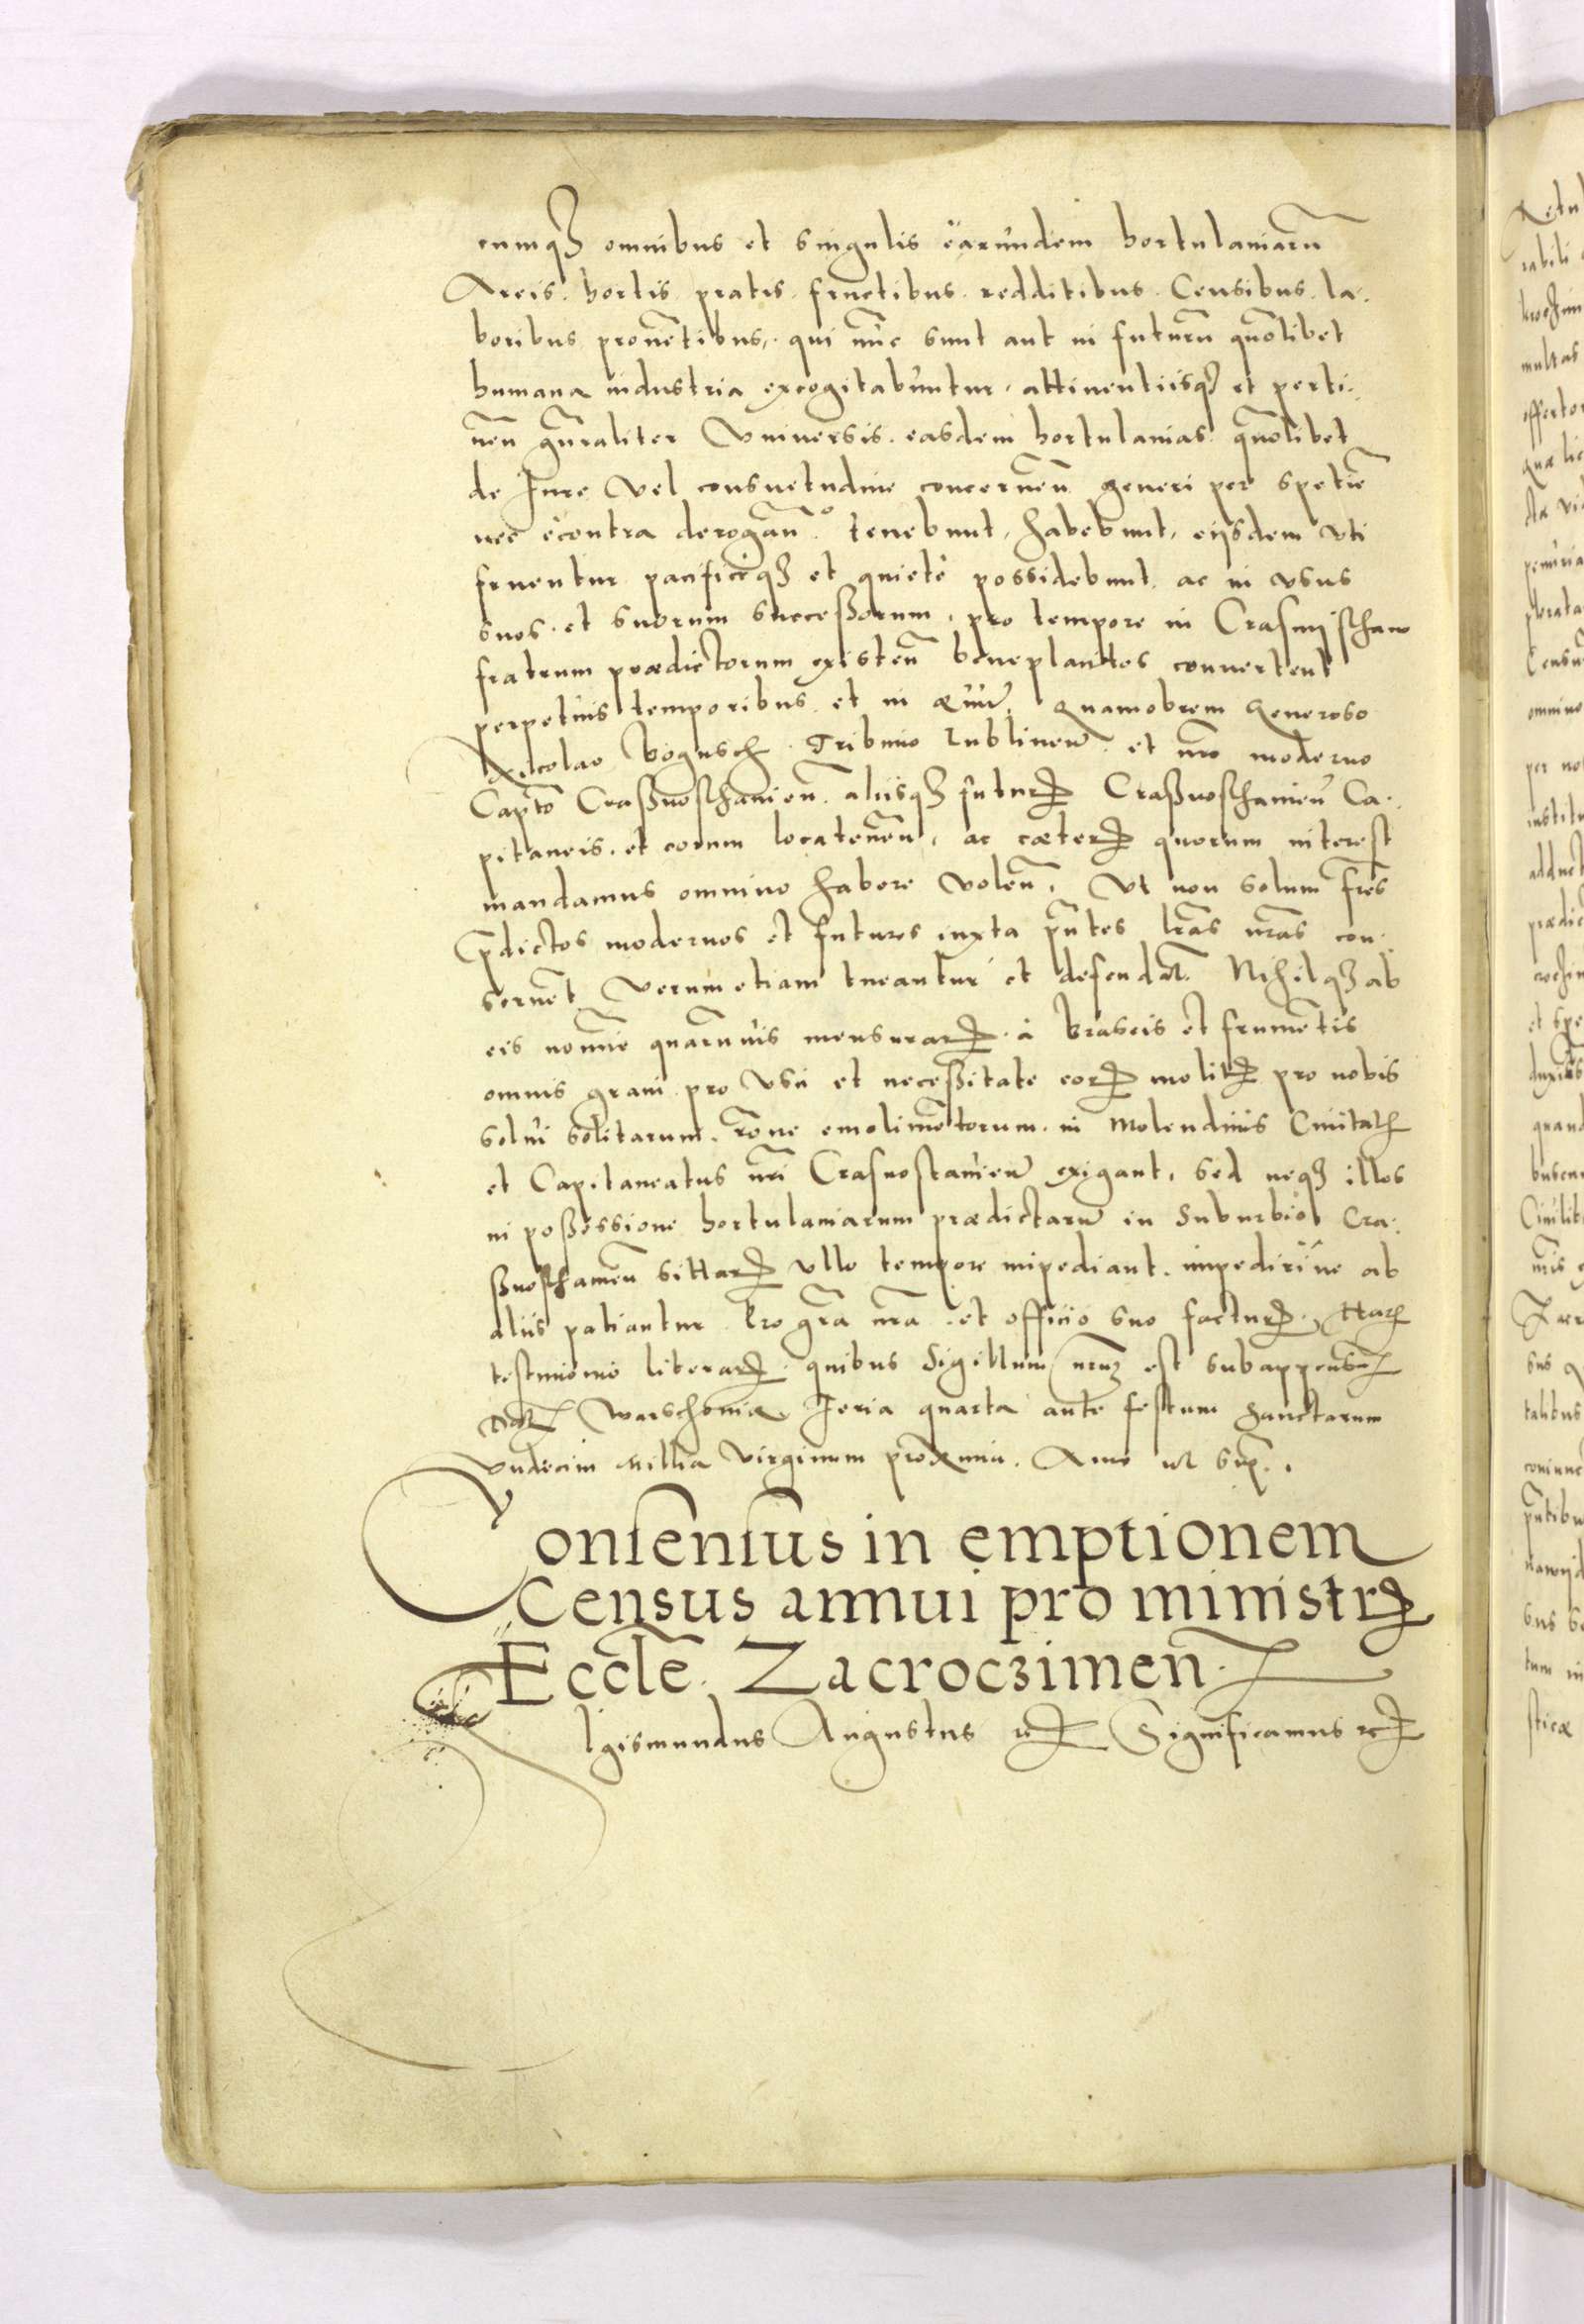 cumq3 omnibus et singulis earundem hortulaniarū
Areis. hortis pratis. fructibus. redditibus. Censibus. la.
boribus prouētibus, qui nūc sunt aut in futurū quōlibet
humana industria excogitabuntur, attinentiisq3 et perti.
nen̄ gn̄raliter Vniuersis. easdem hortulanias quōlibet
de Iure Vel consuetudine concernen̄ generi per spetiē
nec econtra derogan̄º tenebunt, habebunt, eijsdem vti
fruentur pacificeq3 et quiete possidebunt ac in vsus
suos et suorum succeßorum, pro tempore in
fratrum prædictorum existen̄ beneplacitos conuertent
perpetuis temporibus et in æuū. Quamobrem Generoso
Nicolao Bogusch. Tribuno Lublinen̄ et nr̄o moderno
Capt̄o Craßnosthauien̄. aliisq3 futur Craßnosthauien̄ Ca.
pitaneis. et eorum locateneṅ, ac cæter quorum interest
mandamus omnino habere volen̄. Vt non solum fr̄es
p̄dictos modernos et futuros iuxta pn̄tes lr̄as nr̄as con.
seruēt Verum etiam tueantur et defendāt. Nihilq3 ab
eis nomīe mensurar. a braseis et frumētis
omnis grani pro vsu et neceßitate eor molit pro nobis
solui solitarum. rōne emolimētorum in Molendinis Ciuitat
et Capitaneatus nr̄i Crasnostauien̄ exigant, sed neq3 illos
in poßessione hortulaniarum prædictarū in Suburbio Cra.
ßnosthauien̄ sittar vllo tempore impediant. impediriue ab
aliis patiantur Pro gr̄a nr̄a et officio suo factur. Har
testimonio literar quibus Sigillum nr̄um est subappensum
Dat Warschouiæ. Feria quarta ante festum Sanctarum
Vndecim Millia Virginum proxima. Anno vt sup̄.
Consensus in emptionem
Census annui pro ministr
Eccl̄e. Zacroczimen̄.
Sigismundus Augustus etc Significamus etc